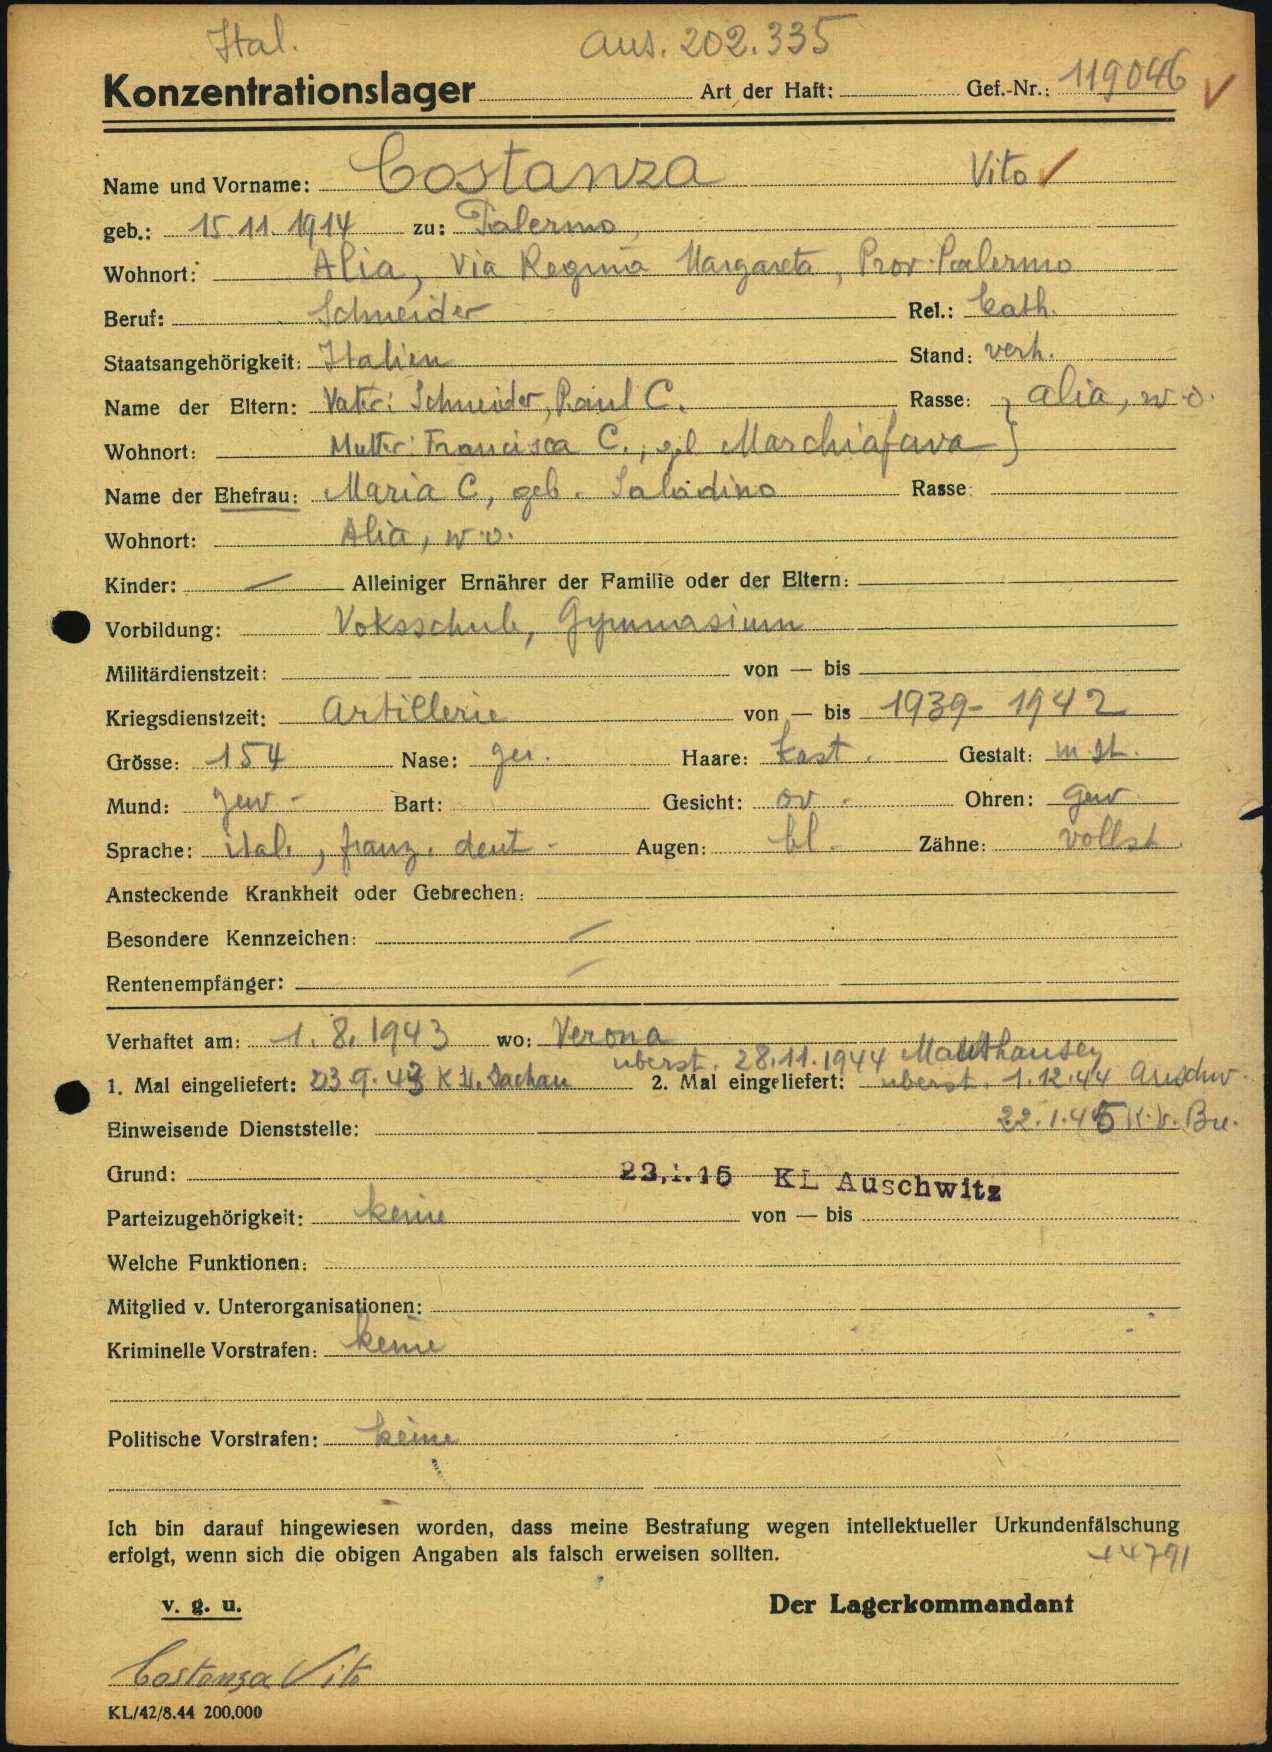 Ital. aus. 202.335
Konzentrationslager Art der Haft: Gef.-Nr.: 119046
Name und Vorname: Costanza Vito
geb.: 15.11.1914 zu: Palermo
Wohnort: Alia, Via Regina Margareta, Prov. Palermo
Beruf: Schneider Rel.: Cath.
Staatsangehörigkeit: Italien Stand: verh.
Name der Eltern: Vater: Schneider, Paul C. Rasse: } Alia, w.o.
Wohnort: Mutter: Francisca C., Marchiafava }
Name der Ehefrau: Maria C, geb. Saladino Rasse:
Wohnort: Alia, w.o.
Kinder: — Alleiniger Ernährer der Familie oder der Eltern:
Vorbildung: Voksschule, Gymnasium
Militärdienstzeit: von — bis
Kriegsdienstzeit: Artillerie von — bis 1939-1942
Grösse: 154 Nase: ger. Haare: kast. Gestalt: m. st.
Mund: gew - Bart: Gesicht: ov - Ohren: gew
Sprache: ital., franz. deut - Augen: bl. Zähne: vollst.
Ansteckende Krankheit oder Gebrechen:
Besondere Kennzeichen: —
Rentenempfänger: —
Verhaftet am: 1.8.1943 wo: Verona
überst. 28.11.1944 Mauthausen
1. Mal eingeliefert: 23.9.43 K.L. Dachau 2. Mal eingeliefert: überst. 1.12.44 Auschw.
Einweisende Dienststelle: 22.1.45 K.L. Bu.
Grund: 23.1.45 KL Auschwitz
Parteizugehörigkeit: keine von — bis
Welche Funktionen:
Mitglied v. Unterorganisationen:
Kriminelle Vorstrafen: keine
Politische Vorstrafen: keine
Ich bin darauf hingewiesen worden, dass meine Bestrafung wegen intellektueller Urkundenfälschung
erfolgt, wenn sich die obigen Angaben als falsch erweisen sollten.
14791
v. g. u. Der Lagerkommandant
Costanza Vito
KL/42/8.44 200.000